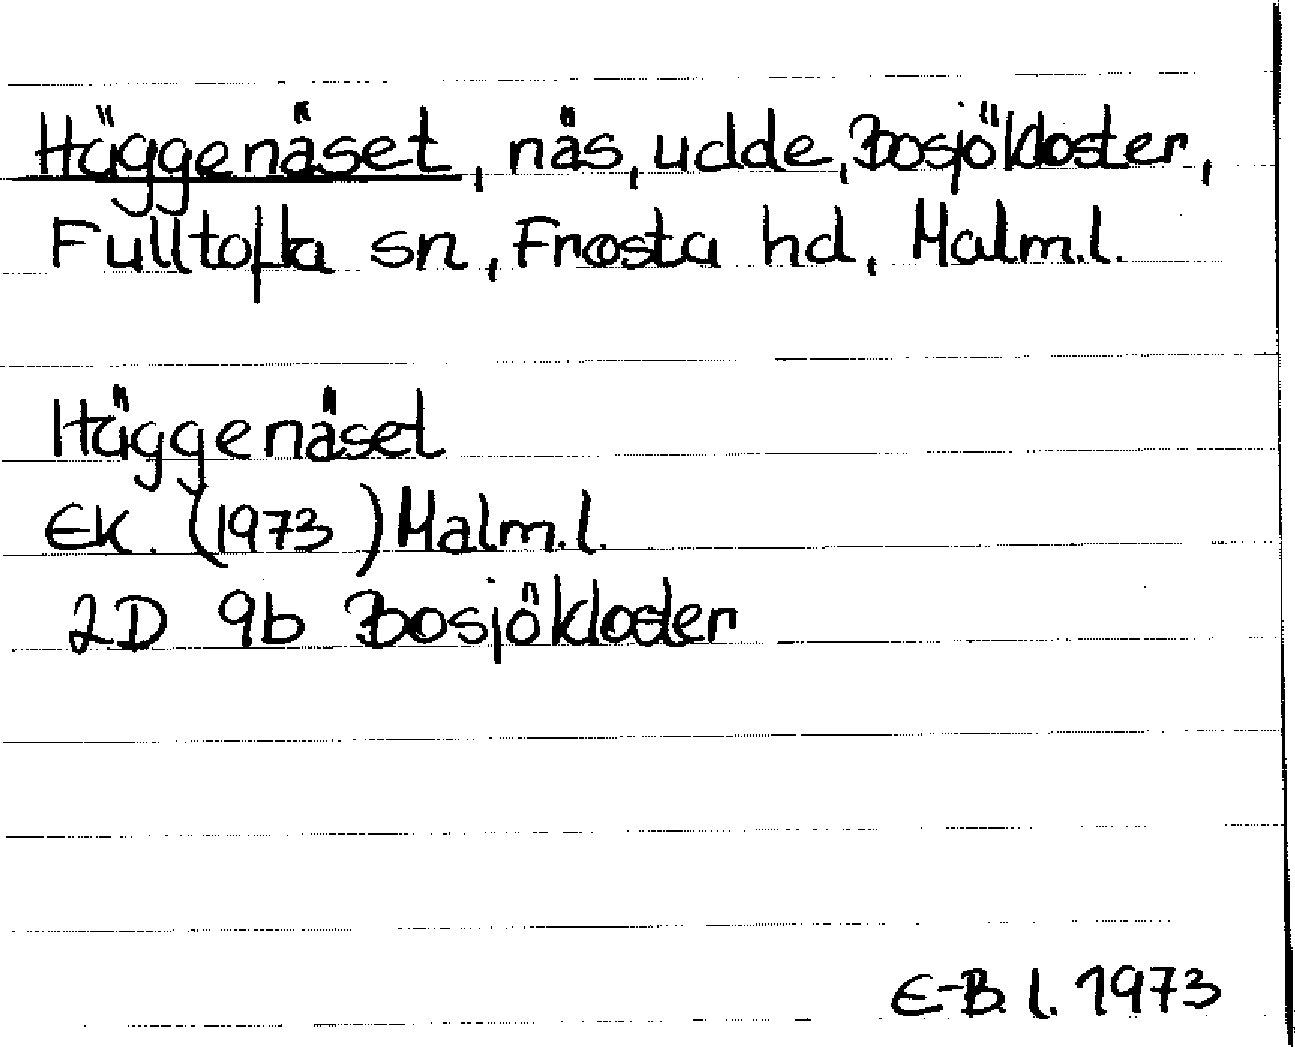 Häggenäset, näs, udde, Bosjökloster,
Fulltofta sn, Frosta hd, Malm.l.
Häggenäset
EK. (1973) Malm.l.
2D 9b Bosjökloster
E-B. l. 1973